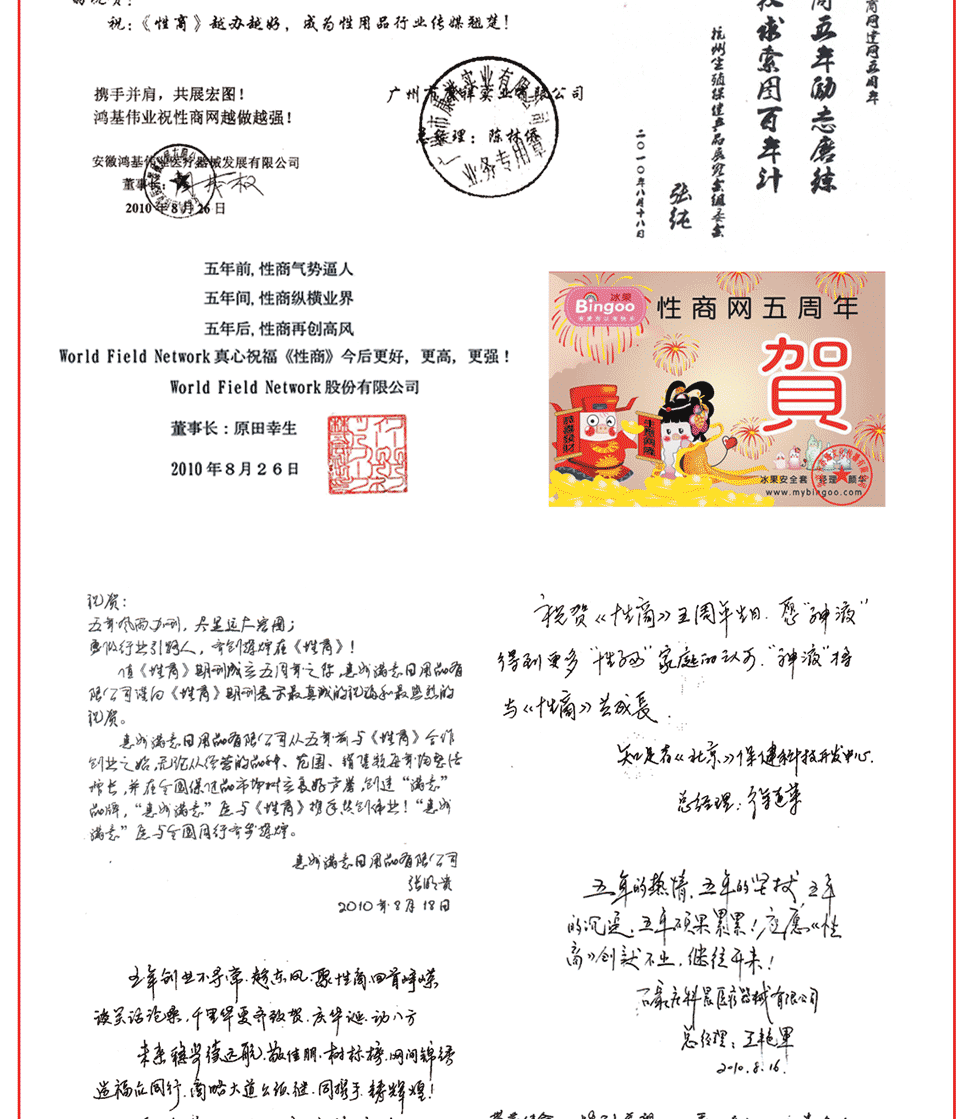 祝：《性商》越办越好，成为性用品行业传媒翘楚！
携手并肩，共展宏图！
鸿基伟业祝性商网越做越强！
安徽鸿基伟业医疗器械发展有限公司
董事长：
2010年8月26日
总经理：陈林侨
业务专用章
五年励志磨练
求索图百年计
商网建网五周年
杭州生殖保健产品展览会组委会
张纯
二〇一〇年八月十八日
五年前,性商气势逼人
五年间,性商纵横业界
五年后,性商再创高风
World Field Network真心祝福《性商》今后更好，更高，更强！
World Field Network股份有限公司
董事长：原田幸生
2010年8月26日
冰果
Bingoo
性商网五周年
賀
恭喜發財
冰果安全套 经理 颜华
www.mybingoo.com
祝贺：
五年风雨办刊，尽显远大宏图；
勇做行业引路人，齐创辉煌在《性商》！
值《性商》期刊成立五周年之际，惠州满志日用品有
限公司谨向《性商》期刊表示最真诚的祝福和最热烈的
祝贺。
惠州满志日用品有限公司从五年前与《性商》合作
创业之始，无论从经营的品种、范围、销售较每年均系倍
增长，并在全国保健品市场树立良好声誉，创造“满志”
品牌，“惠州满志”愿与《性商》携手共创伟业！“惠州
满志”愿与全国同行齐步辉煌。
惠州满志日用品有限公司
2010年8月18日
祝贺《性商》五周年生日．愿“神液”
得到更多“性福”家庭的认可．“神液”将
与《性商》共成長．
知是者《北京》保健科技开发中心．
总经理：
五年的热情，五年的坚持，五年
的沉淀，五年硕果累累！定愿《性
商》创就大业，继往开来！
石家庄科晨医疗器械有限公司
总经理：王艳军
2010.8.16.
五年创业不寻常．趁东风．聚性商．回首峥嵘
谈笑话沧桑，千里罕更齐致贺．庆华诞．动八方
未来稳步续远航，敬佳朋．树标榜．网间锦绣
造福应同行．商略大道公依继．同携手．铸辉煌！